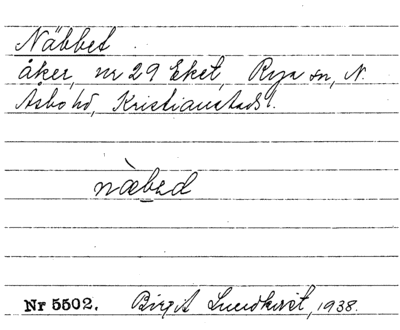 Näbbet
åker, nr 29 Eket, Rya sn, N.
Åsbo hd, Kristianstads l.
næ̀bəd
Nr 5502. Birgit Lundkvist, 1938.